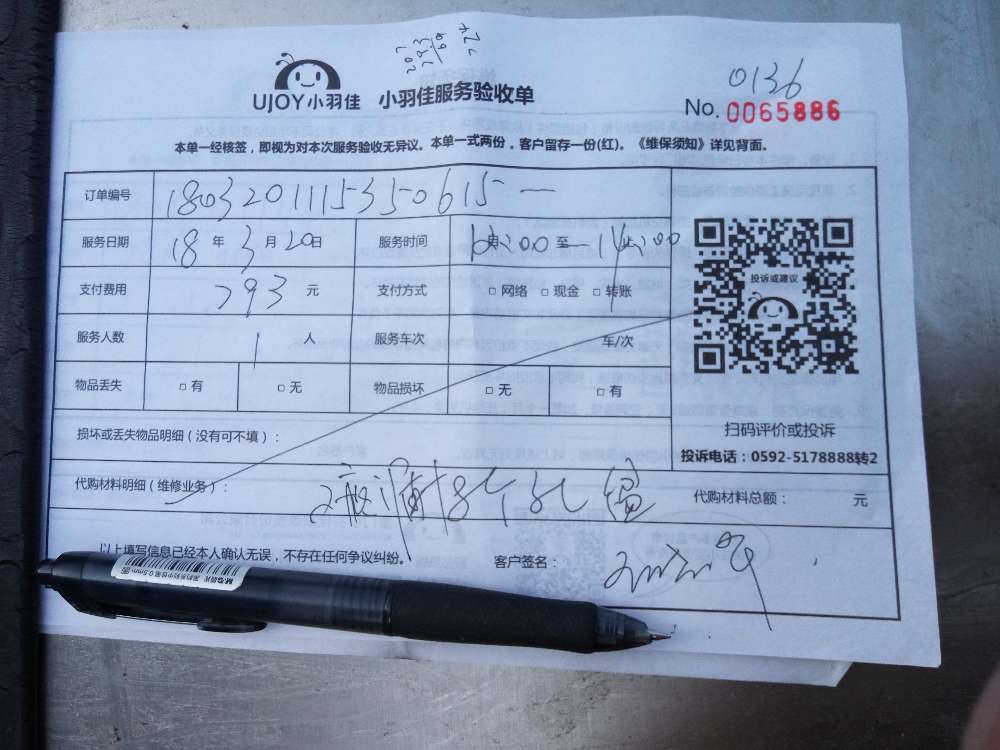 0136
UJOY小羽佳 小羽佳服务验收单 No. 0065886
本单一经核签，即视为对本次服务验收无异议。本单一式两份，客户留存一份(红)。《维保须知》详见背面。
订单编号 1803201115350615
服务日期 18 年 3 月 20 日 服务时间 至 14:00
支付费用 293 元 支付方式 □ 网络 □ 现金 □ 转账
服务人数 1 人 服务车次 车/次
物品丢失 □ 有 □ 无 物品损坏 □ 无 □ 有
投诉或建议
扫码评价或投诉
投诉电话：0592-5178888转2
损坏或丢失物品明细（没有可不填）：
代购材料明细（维修业务）： 代购材料总额： 元
以上填写信息已经本人确认无误，不存在任何争议纠纷。 客户签名：
M&G 0.5mm